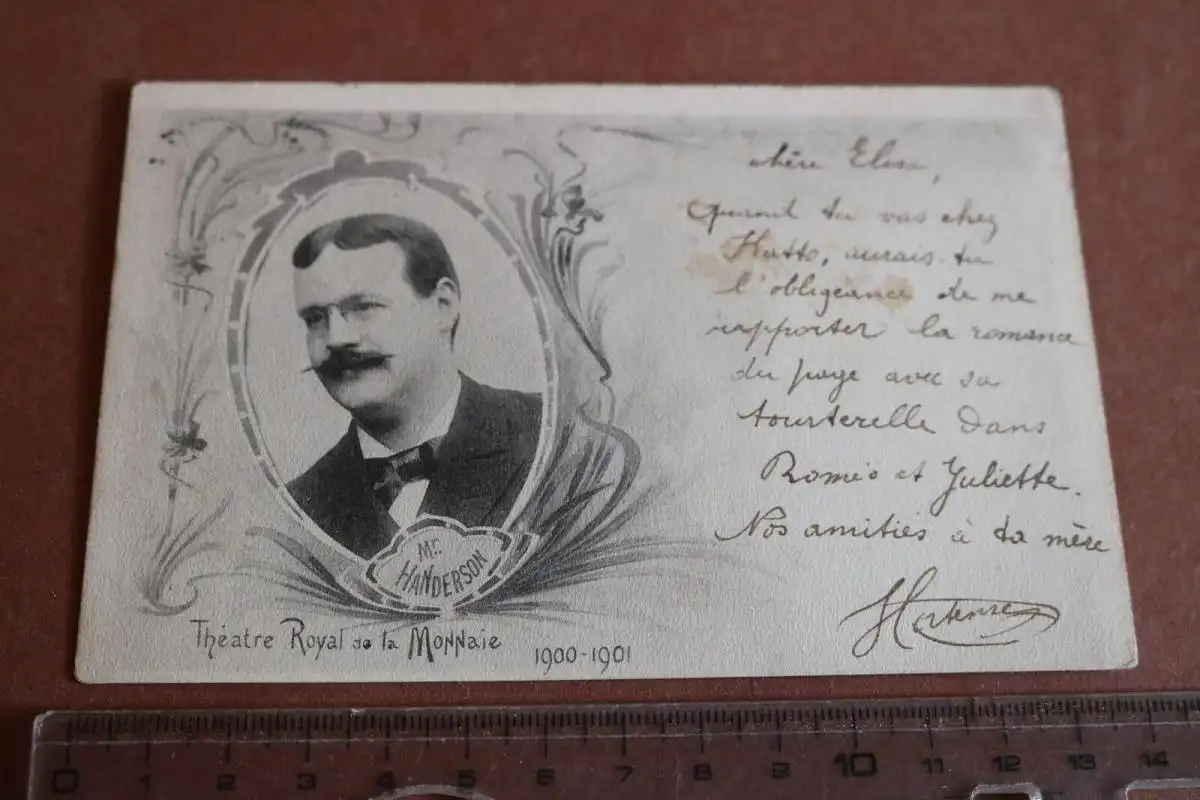 chère Elise,
Quand tu vas chez
Katto, aurais-tu
l'obligeance de me
rapporter la romance
du page avec sa
tourterelle dans
Roméo et Juliette.
Nos amitiés à ta mère
Hortense
Mr. HANDERSON
Théatre Royal de la Monnaie 1900-1901
0 1 2 3 4 5 6 7 8 9 10 11 12 13 14